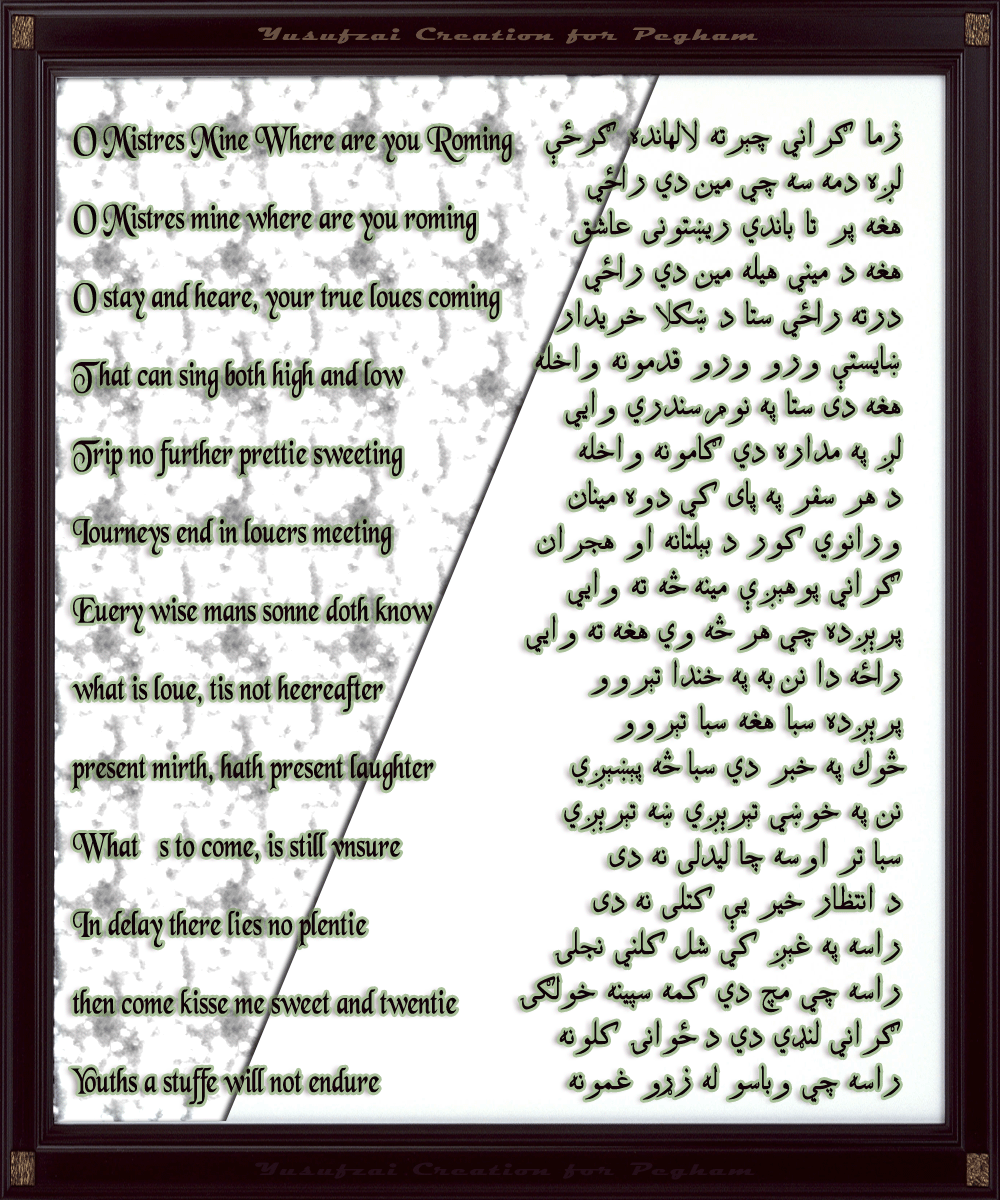 Yusufzai Creation for Pegham
O Mistres Mine Where are you Roming
O Mistres mine where are you roming
O stay and heare, your true loues coming
That can sing both high and low
Trip no further prettie sweeting
Iourneys end in louers meeting
Euery wise mans sonne doth know
what is loue, tis not heereafter
present mirth, hath present laughter
What s to come, is still vnsure
In delay there lies no plentie
then come kisse me sweet and twentie
Youths a stuffe will not endure
زما ګراني چېرته لالهانده ګرځې
لږه دمه سه چي مين دي راځي
هغه پر تا باندي رېښتونی عاشق
هغه د ميني هيله مين دي راځي
درته راځي ستا د ښکلا خريدار
ښايستې ورو ورو قدمونه واخله
هغه دی ستا په نوم سندري وايي
لږ په مداره دي ګامونه واخله
د هر سفر په پای کي دوه مينان
ورانوي کور د بېلتانه او هجران
ګراني پوهېږې مينه څه ته وايي
پرېږده چي هر څه وي هغه ته وايي
راځه دا نن به په خندا تېروو
پرېږده سبا هغه سبا تېروو
څوك په خبر دي سبا څه پېښېږي
نن په خوښي تېرېږي ښه تېرېږي
سبا تر اوسه چا ليدلی نه دی
د انتظار خير يې کتلی نه دی
راسه په غېږ کي شل کلنې نجلۍ
راسه چي مچ دي کمه سپينه خولګۍ
ګراني لنډي دي د ځوانۍ کلونه
راسه چي وباسو له زړو غمونه
Yusufzai Creation for Pegham